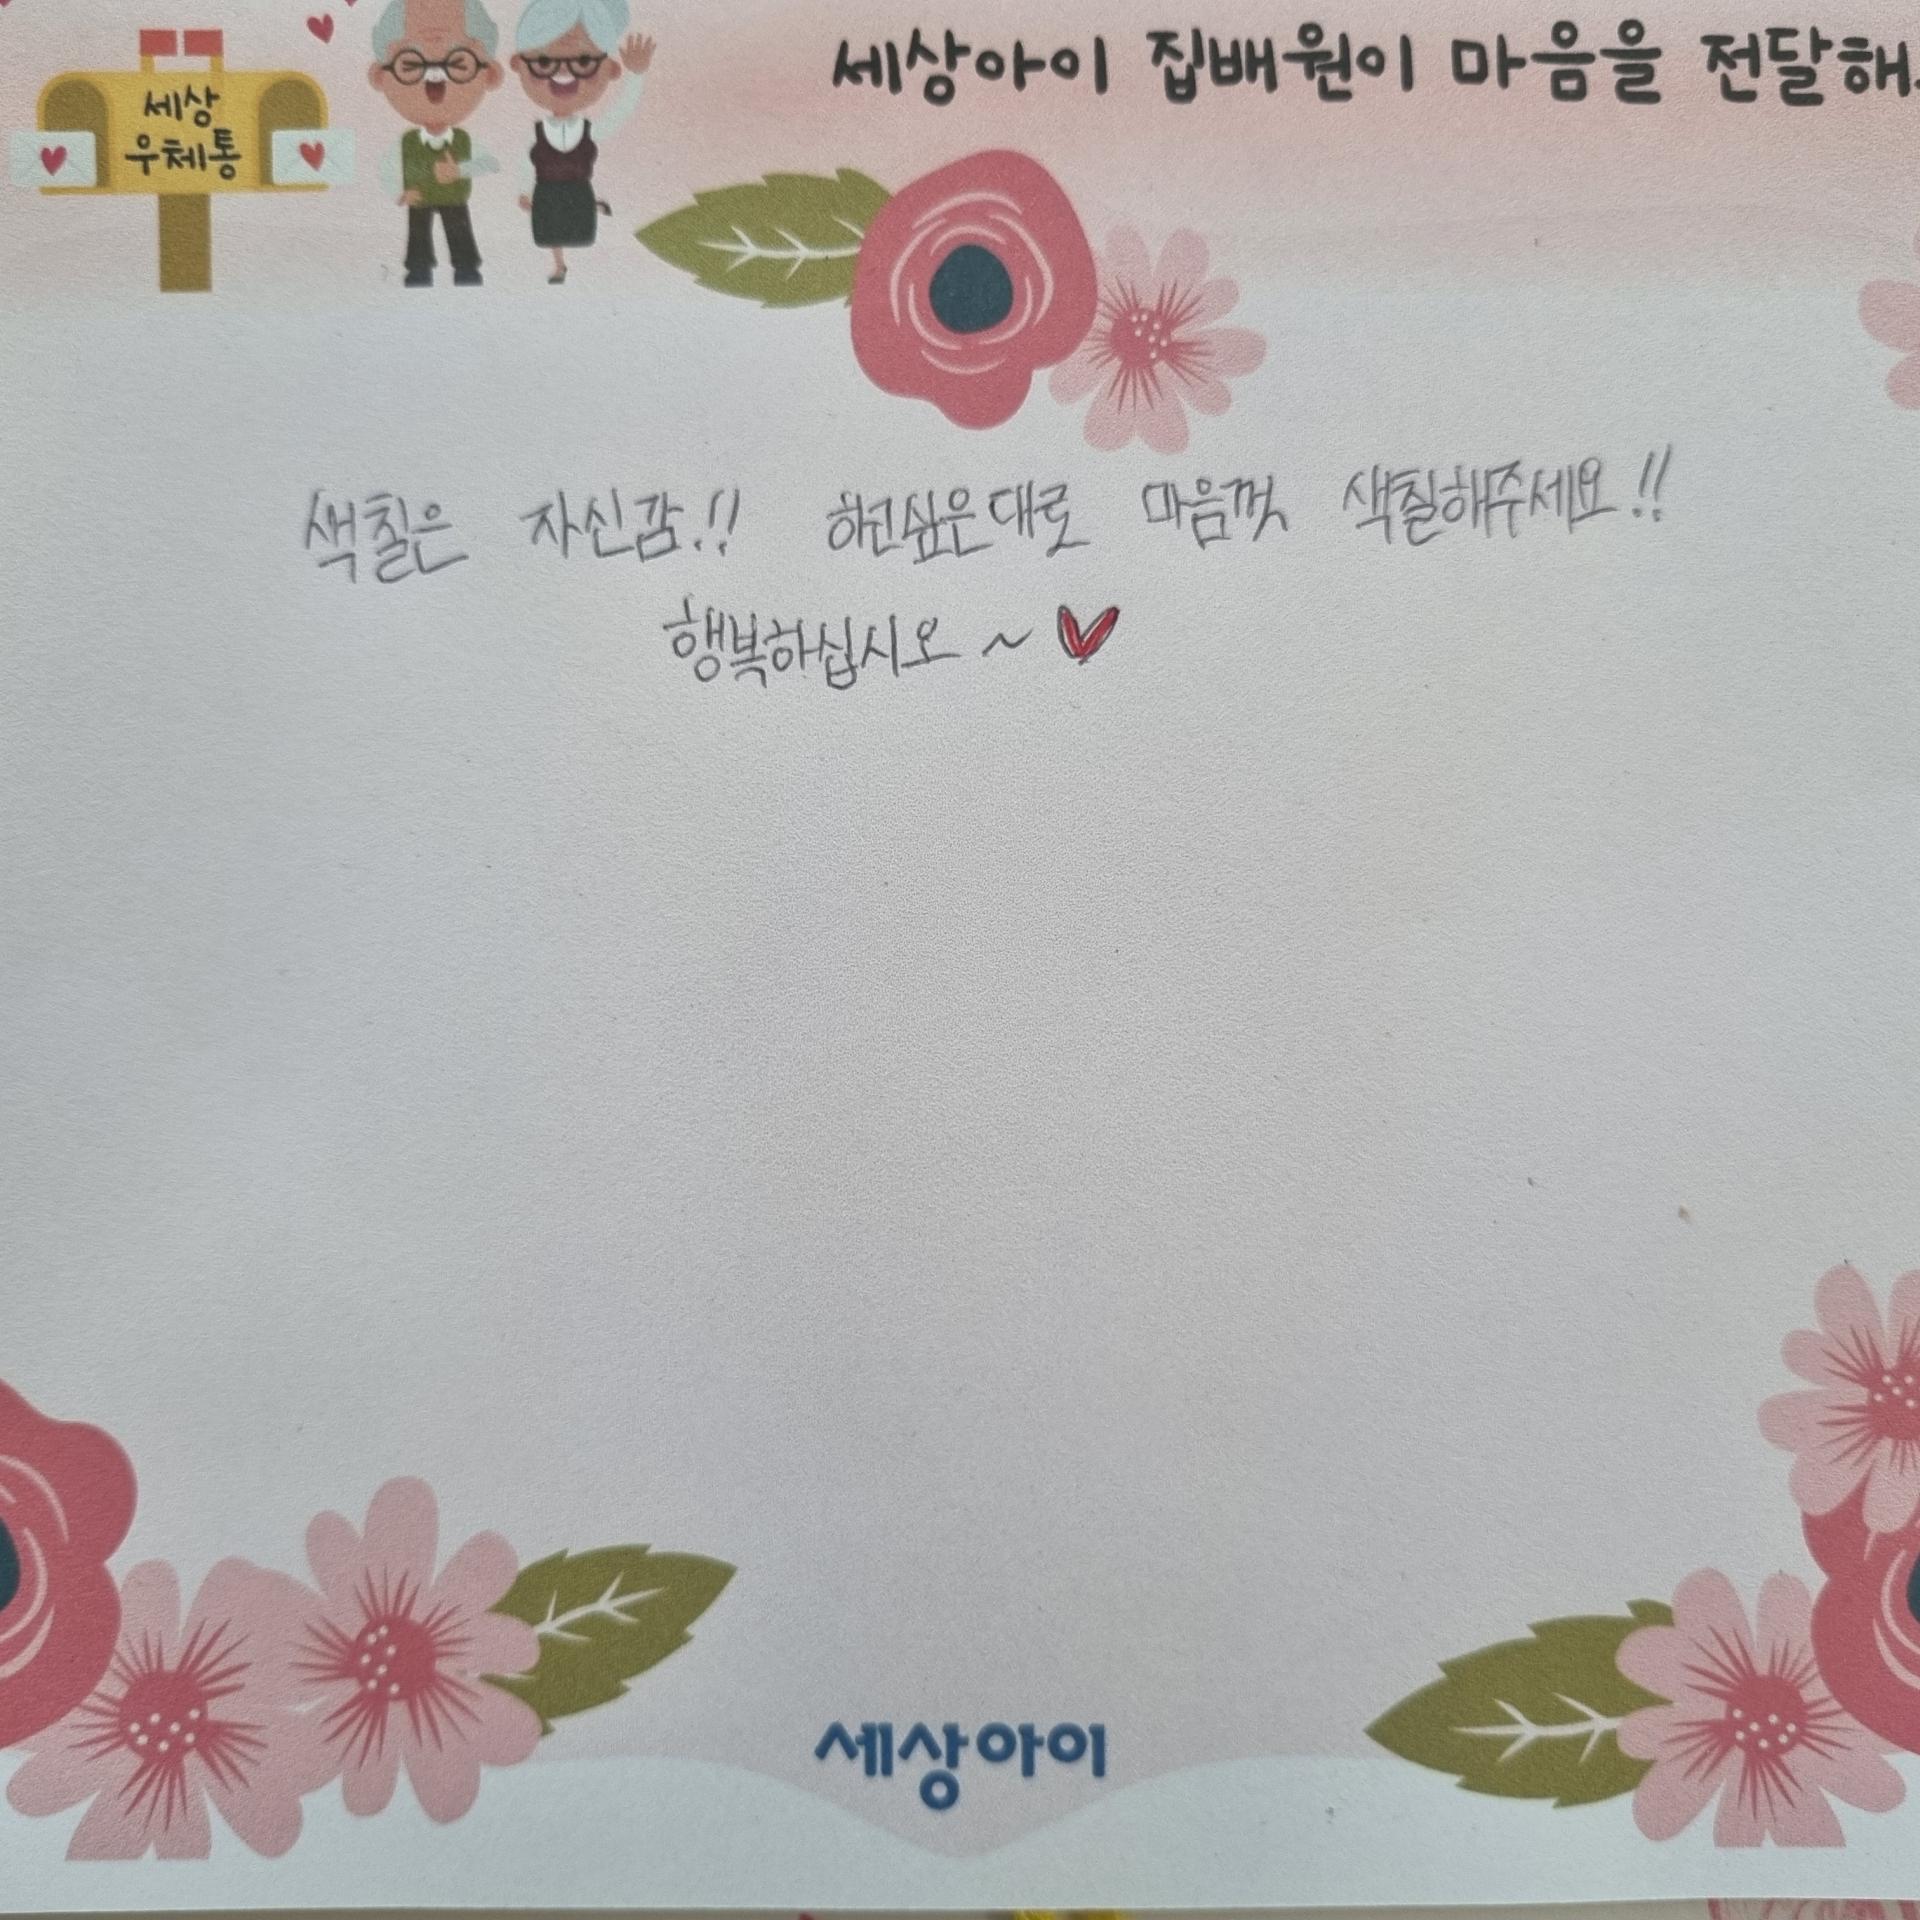 세상아이 집배원이 마음을 전달해
세상
우체통
색칠은 자신감!! 하고싶은대로 마음껏 색칠해주세요!!
행복하십시오~♥
세상아이